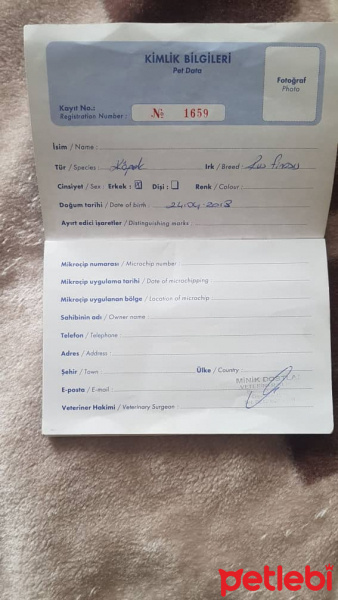 KİMLİK BİLGİLERİ
Pet Data
Fotoğraf
Photo
Kayıt No.:
Registration Number : № 1659
İsim / Name :
Tür / Species : Köpek Irk / Breed :
Cinsiyet / Sex : Erkek : Dişi : Renk / Colour :
Doğum tarihi / Date of birth : 24.04.2018
Ayırt edici işaretler / Distinguishing marks
Mikroçip numarası / Microchip number
Mikroçip uygulama tarihi / Date of microchipping
Mikroçip uygulanan bölge / Location of microchip
Sahibinin adı / Owner name
Telefon / Telephone
Adres / Address :
Şehir / Town Ülke / Country
MİNİK DOST
E-posta / E-mail
Veteriner Hekimi / Veterinary Surgeon
petlebi